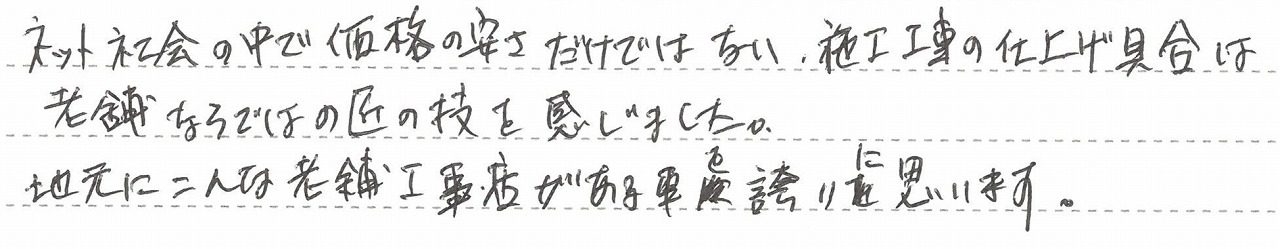 ネット社会の中で価格の安さだけではない、施工工事の仕上げ具合は
老舗ならではの匠の技を感じました。
地元にこんな老舗工事店がある事を誇りに思います。